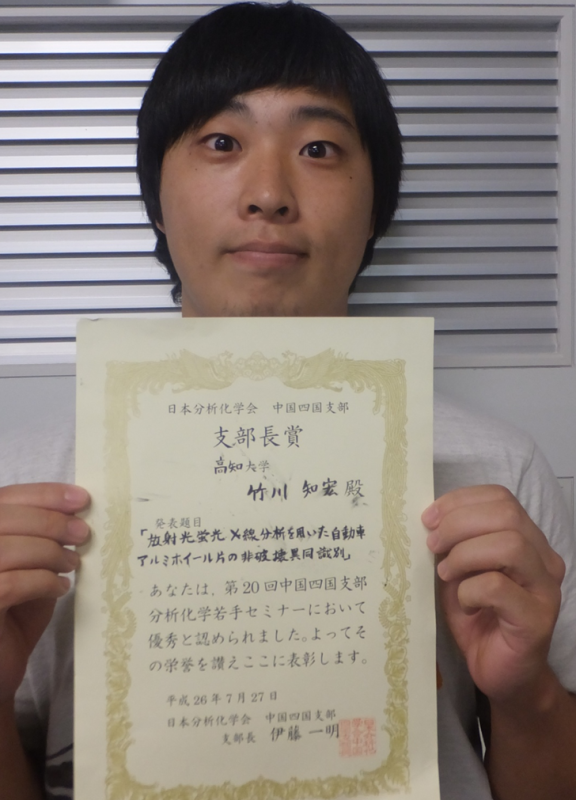 日本分析化学会 中国四国支部
支部長賞
高知大学
竹川 知宏 殿
発表題目
「放射光蛍光X線分析を用いた自動車
アルミホイール片の非破壊異同識別」
あなたは、第20回中国四国支部
分析化学若手セミナーにおいて
優秀と認められました。よってそ
の栄誉を讃えここに表彰します。
平成26年7月27日
日本分析化学会 中国四国支部
支部長 伊藤 一明